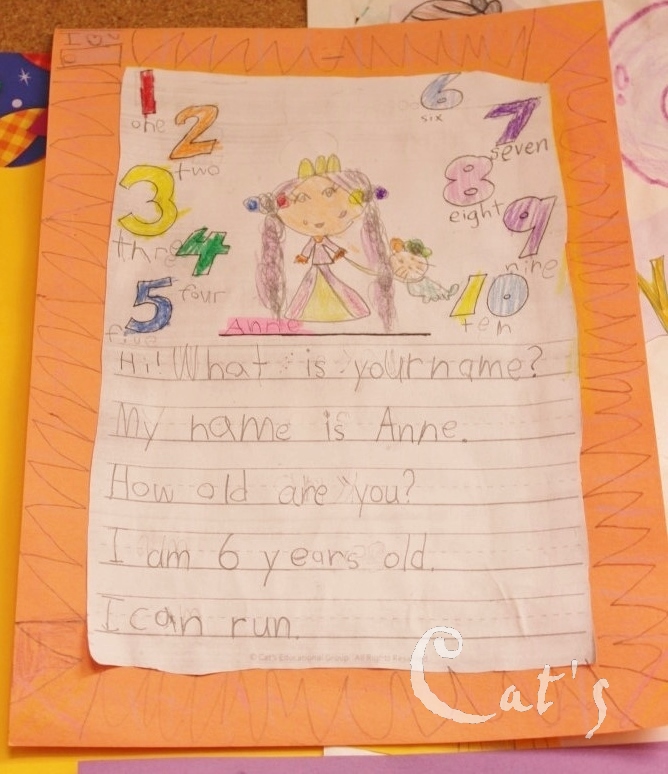 1
one
2
two
3
three
4
four
5
five
6
six
7
seven
8
eight
9
nine
10
ten
Anne
Hi! What is your name?
My name is Anne.
How old are you?
I am 6 years old.
I can run.
© Cat's Educational Group All Rights
Cat's